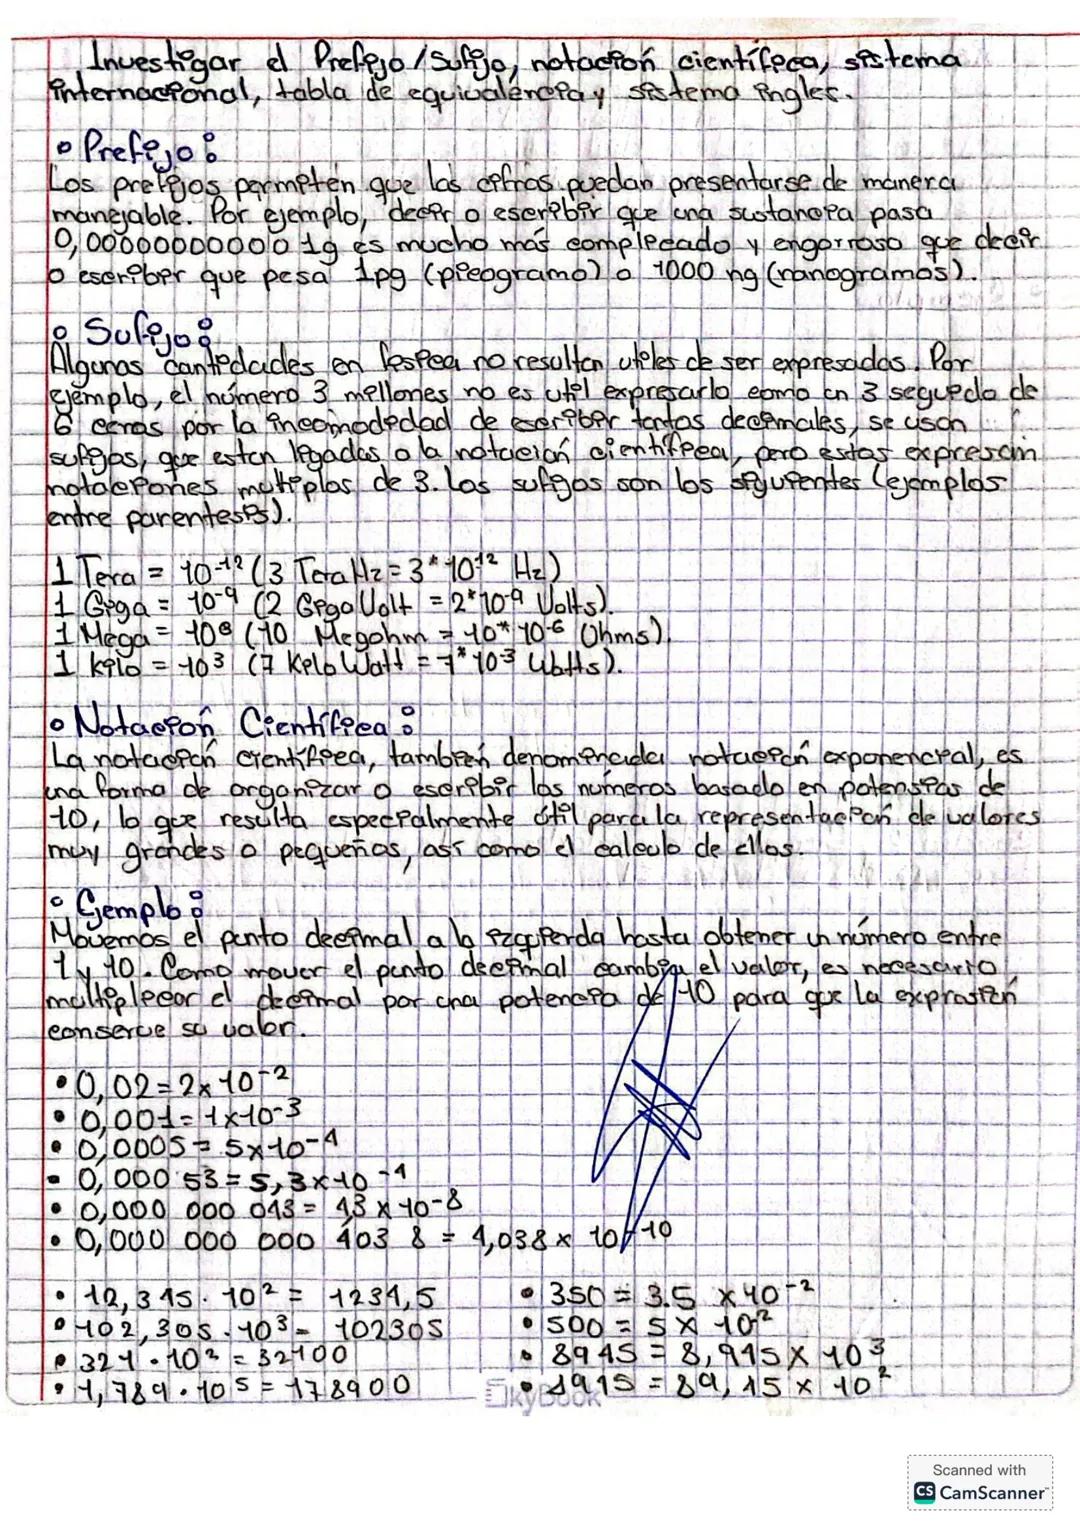 Investigar el Prefijo/Sufijo, notación científica, sistema
internacional, tabla de equivalencia y sistema ingles.
• Prefijo:
Los prefijos permiten que las cifras puedan presentarse de manera
manejable. Por ejemplo, decir o escribir que una sustancia pasa
0,0000000000001g es mucho más complicado y engorroso que decir
o escribir que pesa 1pg (picogramo) o 1000 ng (nanogramos).
• Sufijo:
Algunas cantidades en fisica no resultan utiles de ser expresadas. Por
ejemplo, el número 3 millones no es util expresarlo como un 3 seguido de
6 ceros por la incomodidad de escribir tantos decimales, se usan
sufijos, que estan ligadas a la notación científica, pero estas expresan
notaciones multiplos de 3. Los sufijos son los siguientes (ejemplos
entre parentesis).
1 Tera = 10-12 (3 TeraHz = 3*10-12 Hz)
1 Giga = 10-9 (2 GigaVolt = 2*10-9 Volts).
1 Mega = 108 (10 Megohm = 10*10-6 Ohms).
1 kilo = 103 (7 KiloWatt = 7*10-3 Watts).
• Notación Científica:
La notación científica, también denominada notación exponencial, es
una forma de organizar o escribir los números basado en potensias de
10, lo que resulta especialmente útil para la representación de valores
muy grandes o pequeños, así como el calculo de ellos.
• Ejemplo:
Movemos el punto decimal a la izquierda hasta obtener un número entre
1 y 10. Como mover el punto decimal cambia el valor, es necesario
multiplicar el decimal por una potencia de 10 para que la expresión
conserve su valor.
• 0,02 = 2x10-2
• 0,001 = 1x10-3
• 0,0005 = 5x10-4
• 0,000 53 = 5,3x10-4
• 0,000 000 043 = 4,3 x 10-8
• 0,000 000 000 403 8 = 4,038 x 10-10
• 12,345 · 102 = 1234,5
• 102,305 · 103 = 102305
• 321 · 102 = 32100
• 1,789 · 105 = 178900
• 350 = 3.5 x 10-2
• 500 = 5 x 10-2
• 8945 = 8,945 x 103
• = 89,45 x 102
SkyBook
Scanned with
CS CamScanner